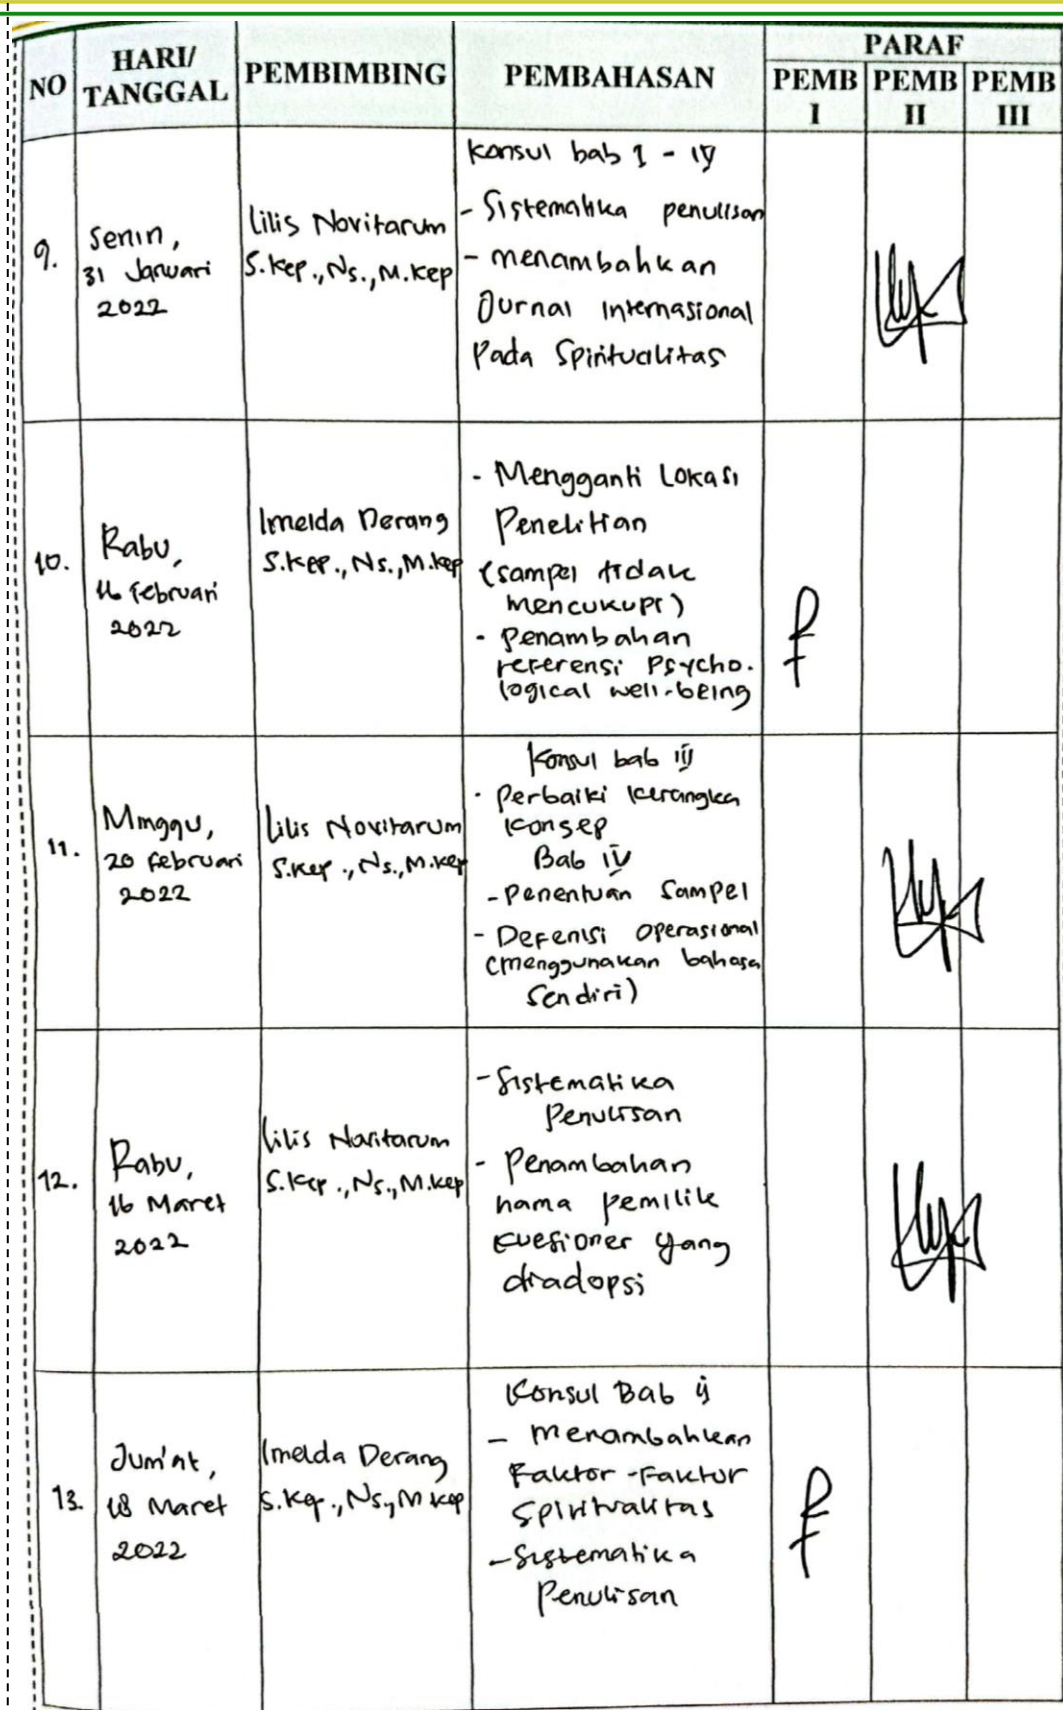 NO
HARI/
TANGGAL
PEMBIMBING
PEMBAHASAN
PARAF
PEMB
I
PEMB
II
PEMB
III
9.
Senin,
31 Januari
2022
Lilis Novitarum
S.Kep., Ns., M.Kep
Konsul bab I - IV
- Sistematika penulisan
- menambahkan
Jurnal Internasional
Pada Spiritualitas
10.
Rabu,
16 Februari
2022
Imelda Derang
S.Kep., Ns., M.Kep
- Mengganti Lokasi
Penelitian
(sampel tidak
mencukupi)
- Penambahan
referensi Psycho-
logical well-being
11.
Minggu,
20 Februari
2022
Lilis Novitarum
S.Kep., Ns., M.Kep
Konsul bab III
- Perbaiki kerangka
Konsep
Bab IV
- Penentuan Sampel
- Defenisi Operasional
(menggunakan bahasa
Sendiri)
12.
Rabu,
16 Maret
2022
Lilis Novitarum
S.Kep., Ns., M.Kep
- Sistematika
Penulisan
- Penambahan
nama pemilik
kuesioner yang
diadopsi
13.
Jum'at,
18 Maret
2022
Imelda Derang
S.Kep., Ns., M.Kep
Konsul Bab II
- Menambahkan
Faktor-Faktor
Spiritualitas
- Sistematika
Penulisan